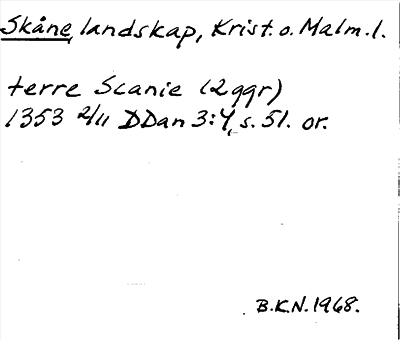 Skåne, landskap, Krist. o. Malm. l.
terre Scanie (2ggr)
1353 2/11 DDan 3:4, s. 51. or.
B.K.N. 1968.